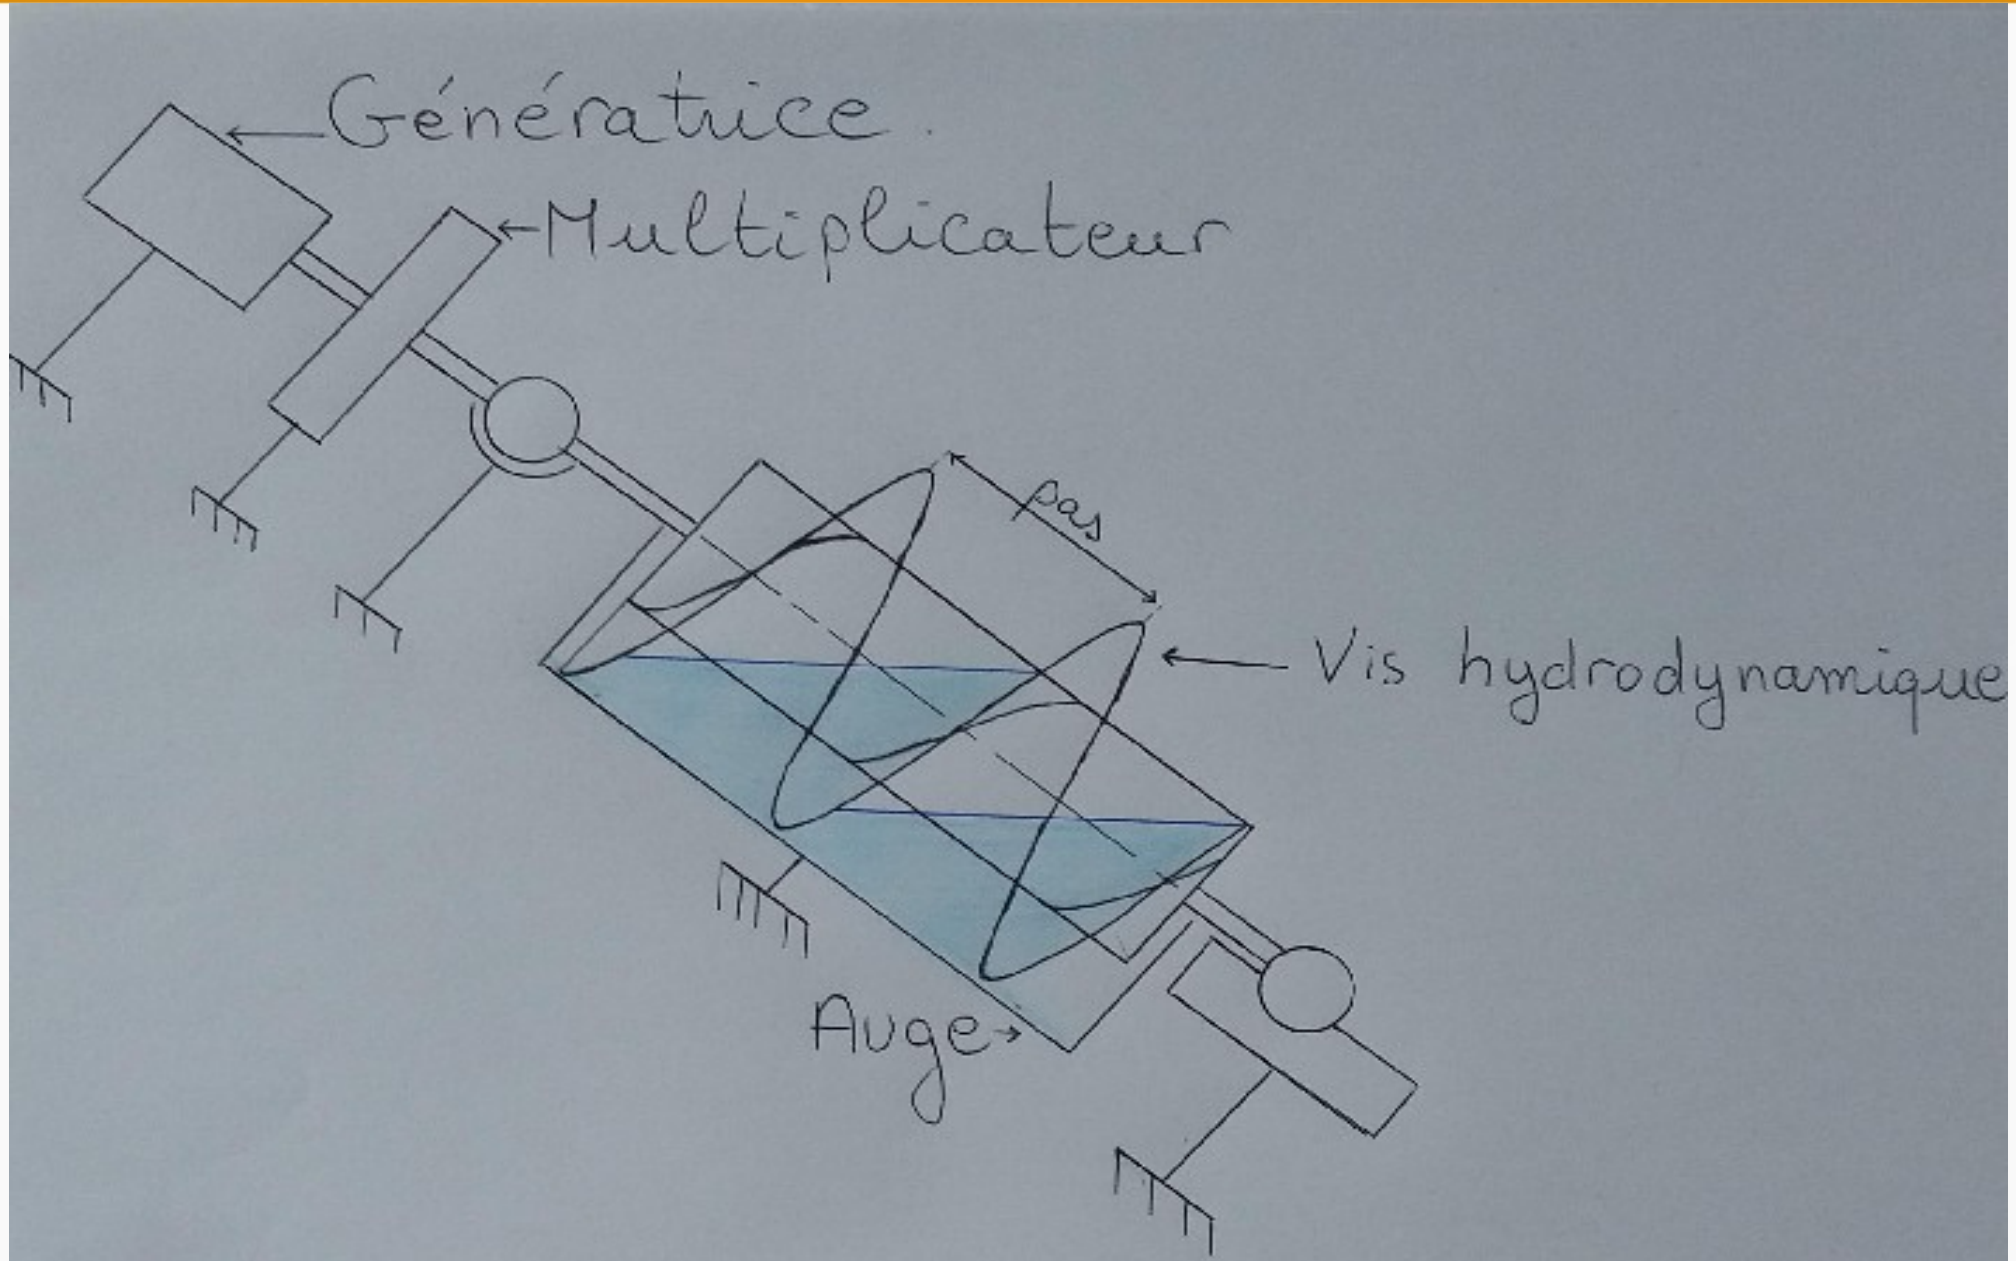 Génératrice.
Multiplicateur
pas
Vis hydrodynamique
Auge